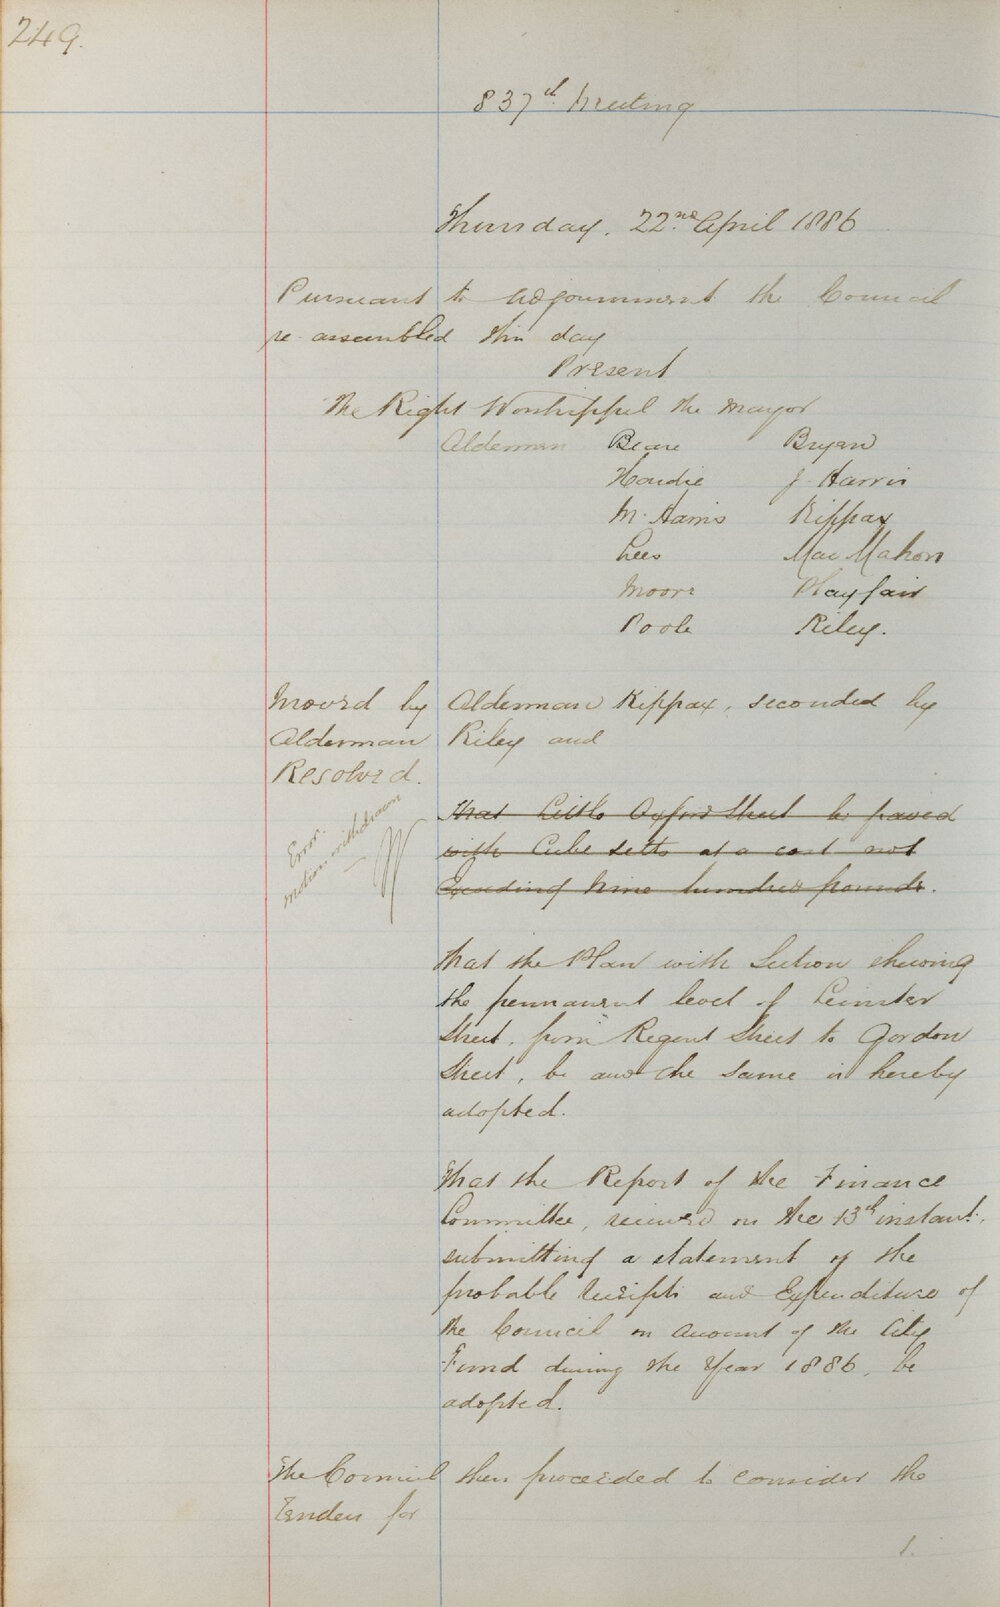 249.
837th Meeting
Thursday, 22nd April 1886
Pursuant to adjournment the Council
re-assembled this day
Present
The Right Worshipful the Mayor
Aldermen Beare Bryen
Hordie J. Harris
M. Harris Kippax
Lees MacMahon
Moore Playfair
Poole Riley.
Moved by Alderman Kippax, seconded by
Alderman Riley and
Resolved.
Error.
Motion withdrawn
That Little Oxford Street be paved
with Cube setts at a cost not
Exceeding Nine hundred pounds.
That the Plan with Section shewing
the permanent level of Leinster
Street, from Regent Street to Gordon
Street, be and the same is hereby
adopted.
That the Report of the Finance
Committee, received on the 13th instant,
submitting a statement of the
probable receipts and Expenditure of
the Council on account of the City
Fund during the Year 1886, be
adopted.
The Council then proceeded to consider the
Tenders for
1.